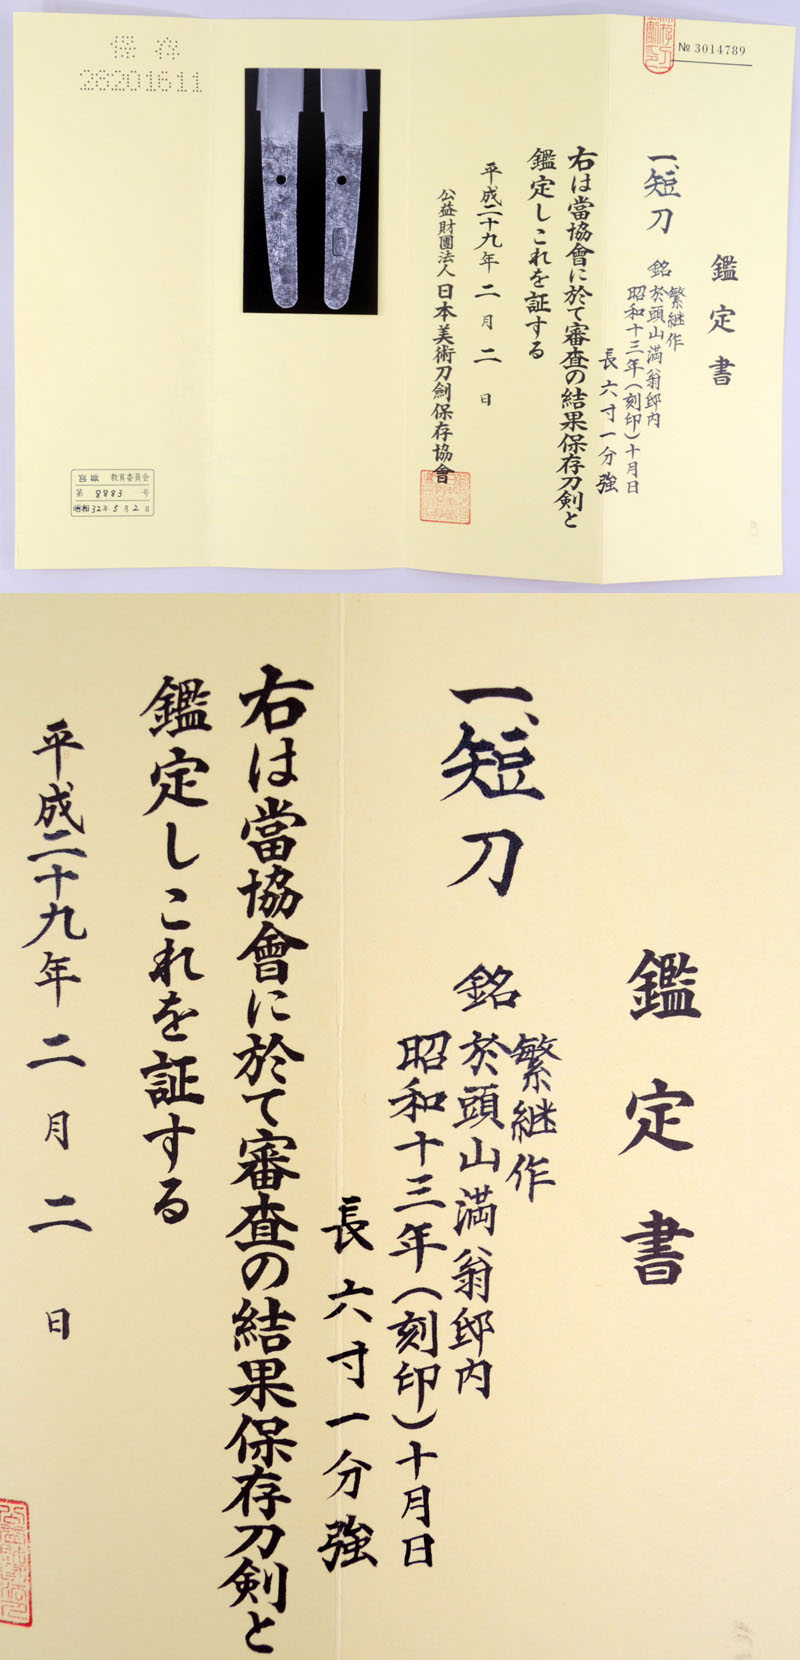 № 3014789
鑑定書
一、短刀 銘 繁継作
於頭山満翁邸内
昭和十三年(刻印)十月日
長六寸一分強
右は當協會に於て審査の結果保存刀剣と
鑑定しこれを証する
平成二十九年 二月 二日
公益財團法人 日本美術刀劍保存協會
保存
28201611
宮城 教育委員会
第 8883 号
昭和32年5月2日
鑑定書
一、短刀 銘 繁継作
於頭山満翁邸内
昭和十三年(刻印)十月日
長六寸一分強
右は當協會に於て審査の結果保存刀剣と
鑑定しこれを証する
平成二十九年 二月 二日